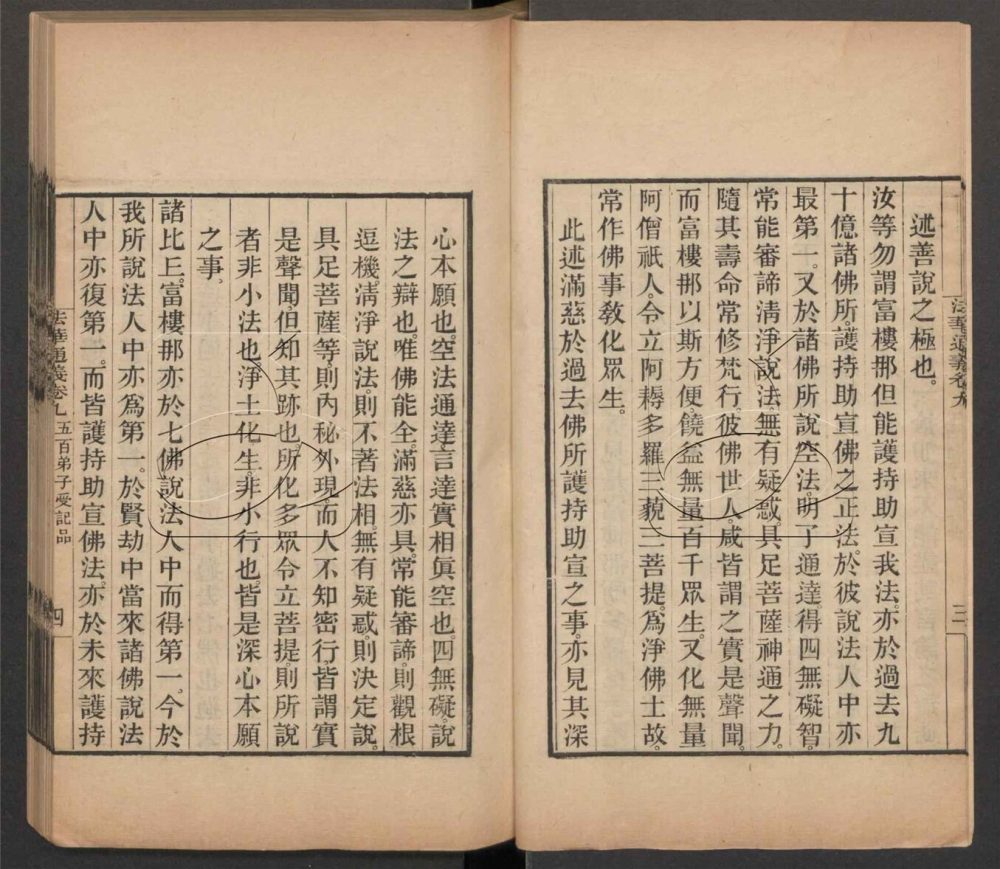 述善說之極也。
汝等勿謂富樓那但能護持助宣我法。亦於過去九
十億諸佛所。護持助宣佛之正法。於彼說法人中亦
最第一。又於諸佛所說空法。明了通達。得四無礙智。
常能審諦清淨說法。無有疑惑。具足菩薩神通之力。
隨其壽命常修梵行。彼佛世人。咸皆謂之實是聲聞。
而富樓那以斯方便。饒益無量百千眾生。又化無量
阿僧祇人。令立阿耨多羅三藐三菩提。為淨佛土故。
常作佛事教化眾生。
此述滿慈於過去佛所護持助宣之事。亦見其深
法華通義卷九
三
心本願也。空法通達。言達實相眞空也。四無礙。說
法之辯也。唯佛能全。滿慈亦具。常能審諦。則觀根
逗機。清淨說法。則不著法相。無有疑惑。則決定說。
具足菩薩等。則內秘外現。而人不知密行。皆謂實
是聲聞。但知其跡也。所化多眾令立菩提。則所說
者非小法也。淨土化生。非小行也。皆是深心本願
之事。
諸比丘。富樓那亦於七佛說法人中而得第一。今於
我所說法人中亦為第一。於賢劫中當來諸佛說法
人中亦復第一。而皆護持助宣佛法。亦於未來護持
法華通義卷九
五百弟子受記品
四